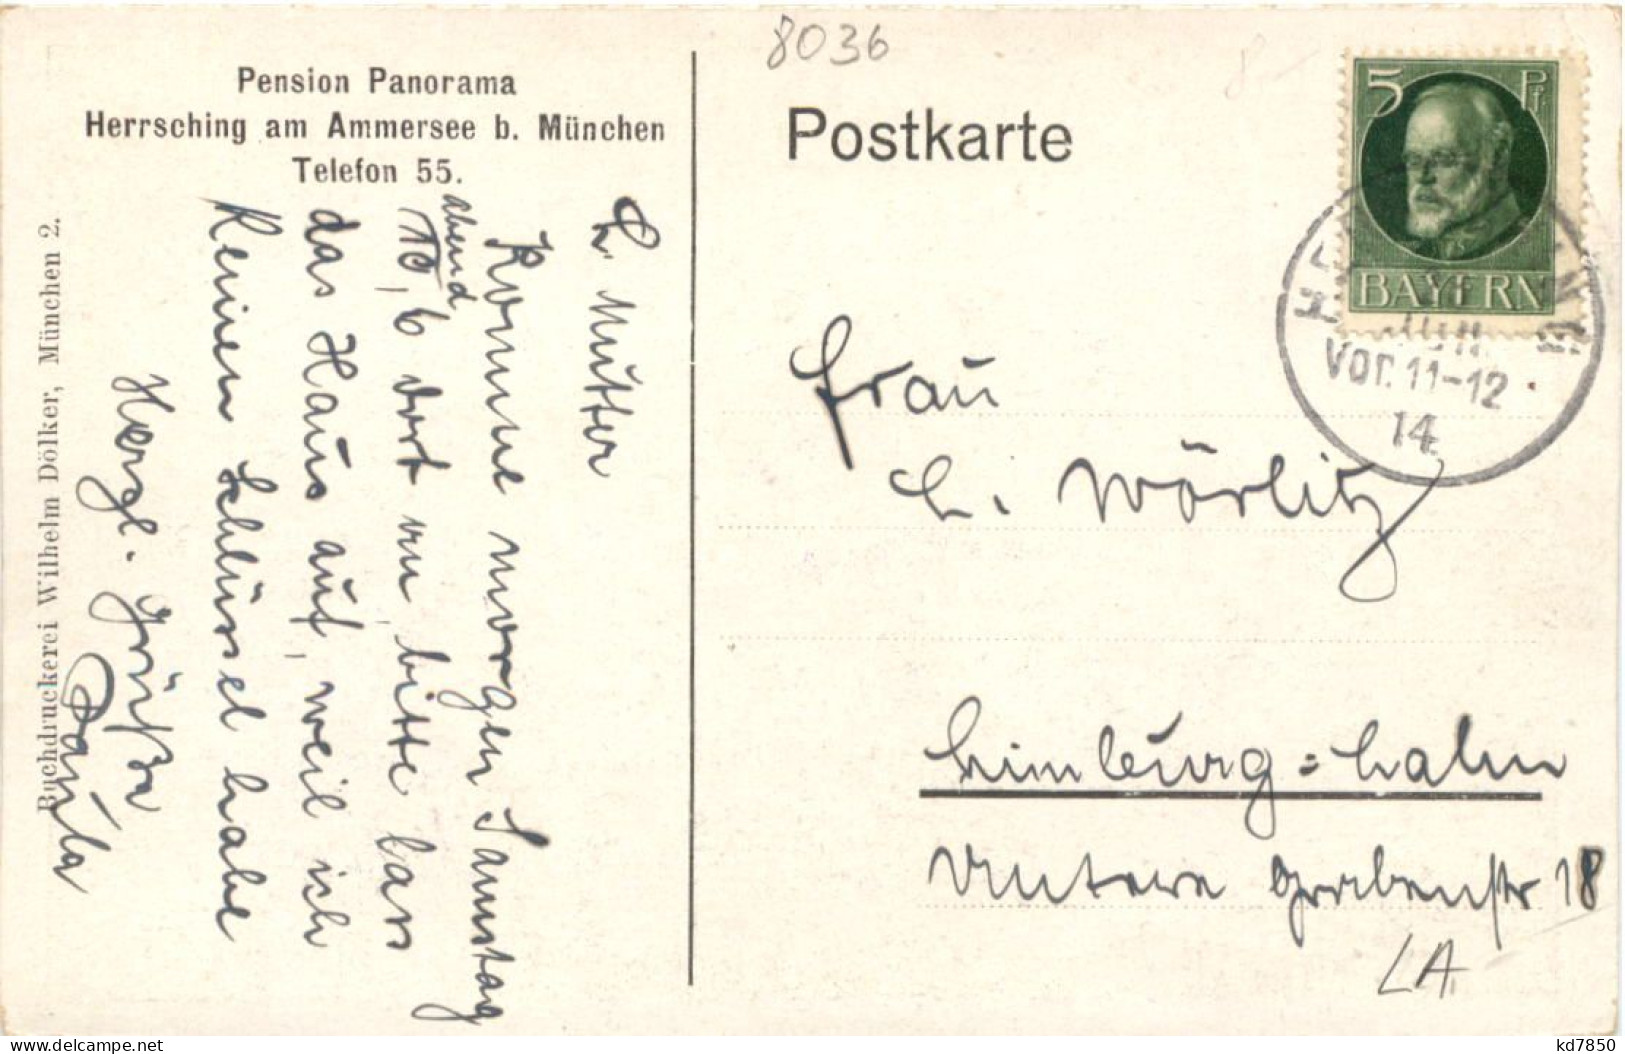 Pension Panorama
Herrsching am Ammersee b. München
Telefon 55.
L. Mutter
Komme morgen Samstag
abend
10,6 dort an, bitte lass
das Haus auf, weil ich
keinen Schlüssel habe
Herzl. Grüße
Paula
Buchdruckerei Wilhelm Dölker, München 2.
8036
Postkarte
5 Pf.
BAYERN
Vor. 11-12
14.
Frau
L. Wörlitz
Limburg=Lahn
Untere Grabenstr 18
LA
kd7850